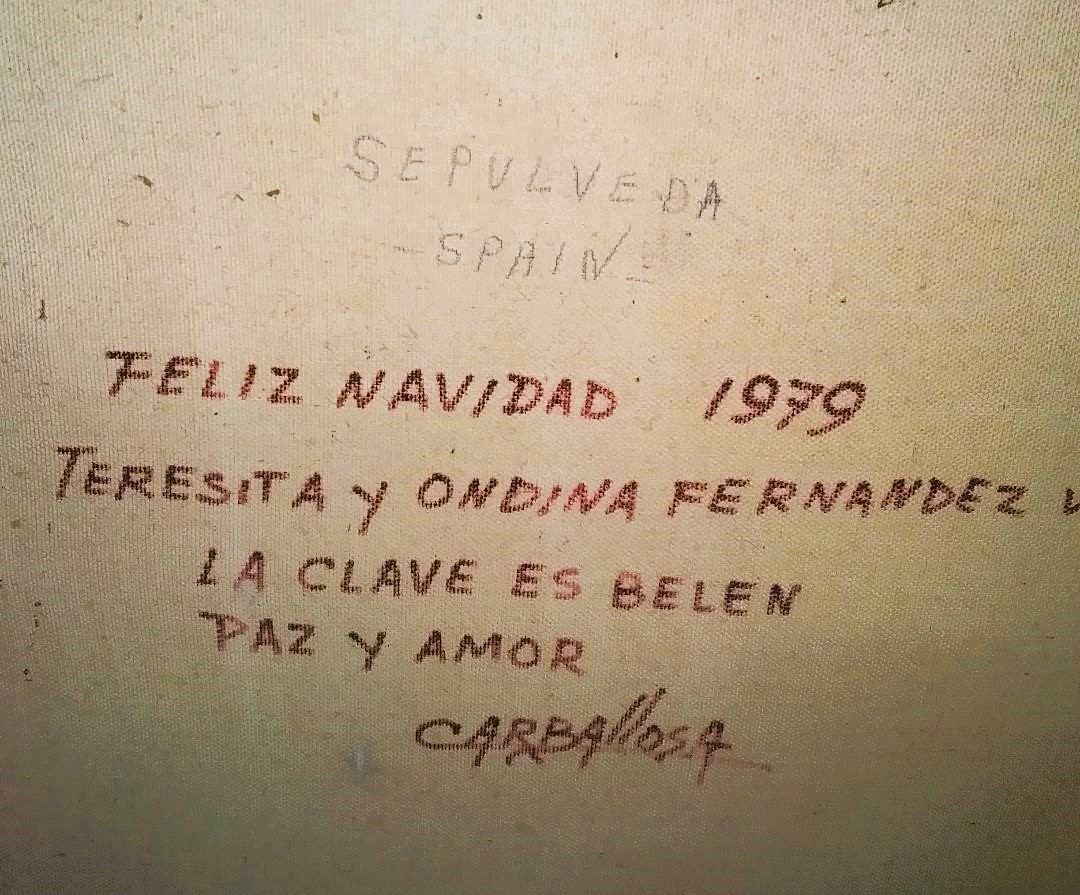 SEPULVEDA
-SPAIN-
FELIZ NAVIDAD 1979
TERESITA y ONDINA FERNANDEZ
LA CLAVE ES BELEN
PAZ Y AMOR
CARBAllOSA